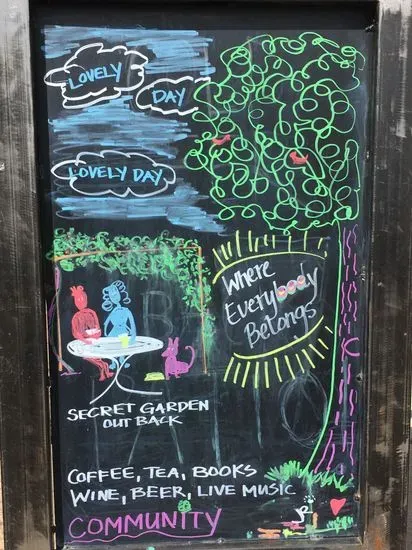 LOVELY
DAY
LOVELY DAY
Where
Everybody
Belongs
SECRET GARDEN
OUT BACK
COFFEE, TEA, BOOKS
WINE, BEER, LIVE MUSIC
COMMUNITY